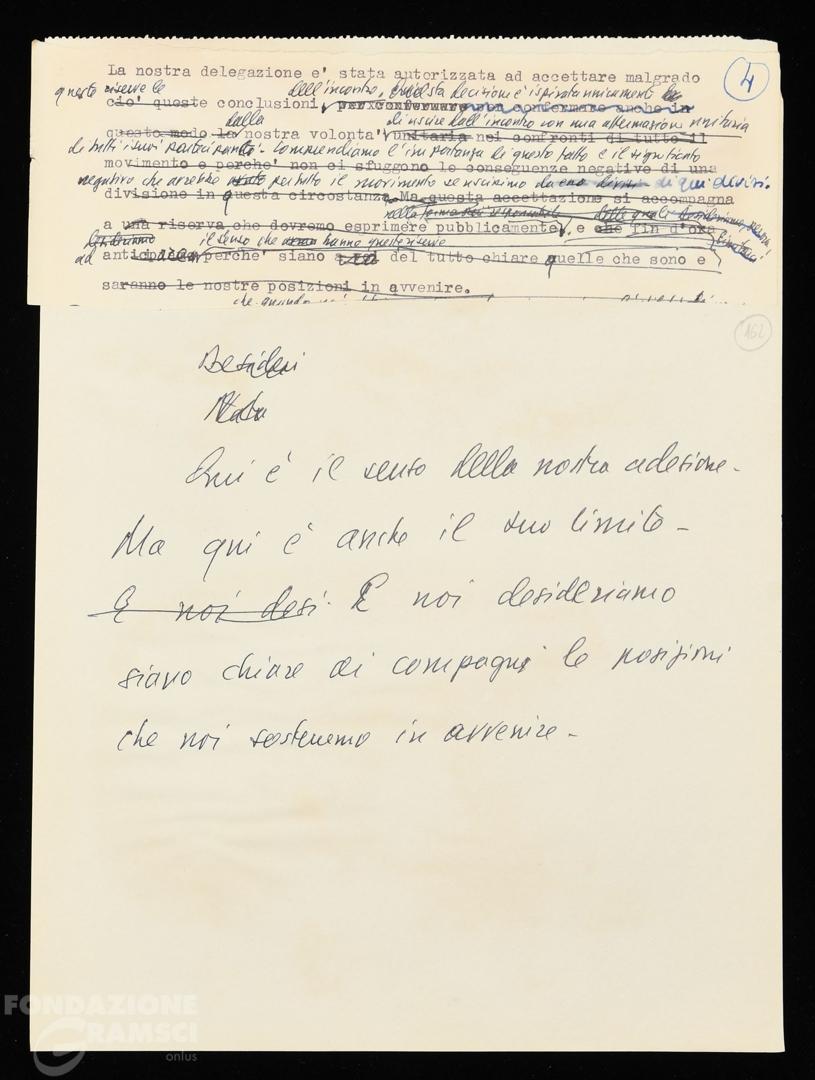 La nostra delegazione e' stata autorizzata ad accettare malgrado
4
queste riserve le dell'incontro. Questa decisione è ispirata unicamente
cio' queste conclusioni, per confermare non confermare anche in
dalla di uscire dall'incontro con una affermazione unitaria
questo modo la nostra volonta' unitaria nei confronti di tutto il
di tutti i suoi partecipanti. Comprendiamo l'importanza di questo fatto e il significato
movimento e perche' non ci sfuggono le conseguenze negative di una
negativo che avrebbe per tutto il movimento se uscissimo di qui divisi.
divisione in questa circostanza. Ma questa accettazione si accompagna
a una riserva che dovremo esprimere pubblicamente, e che fin d'ora
il senso che hanno queste riserve
ad anticipare perche' siano del tutto chiare quelle che sono e
saranno le nostre posizioni in avvenire.
che quando noi
162
Desideri
Qui è il senso della nostra adesione.
Ma qui è anche il suo limite -
E noi desi. E noi desideriamo
siano chiare ai compagni le posizioni
che noi sosteremo in avvenire -
FONDAZIONE
GRAMSCI
onlus